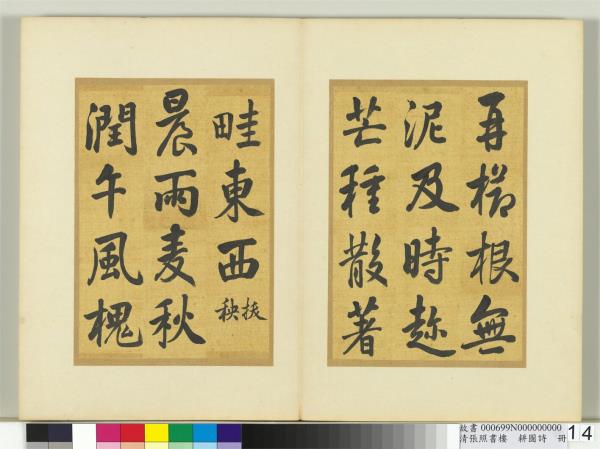 再櫛根無
泥及時趂
芒種散著
畦東西 拔秧
晨雨麦秋
潤午風槐
故書 000699N000000000
清張照書樓 耕圖詩 冊
14